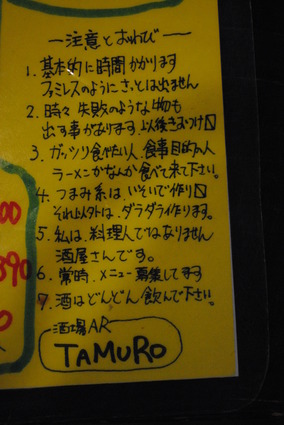 ー注意とおわびー
1. 基本的に時間かかります
ファミレスのようにさっとは出ません
2. 時々失敗のような物も
出す事があります。以後きおつけ〼
3. ガッツリ食べたい人、食事目的の人
ラーメンかなんか食べて来て下さい。
4. つまみ系は、いそいで作り〼
それ以外は、ダラダラ作ります。
5. 私は、料理人ではありません
酒屋さんです。
6. 常時、メニュー募集してます
7. 酒はどんどん飲んで下さい。
酒場AR
TAMURO
00
890
0